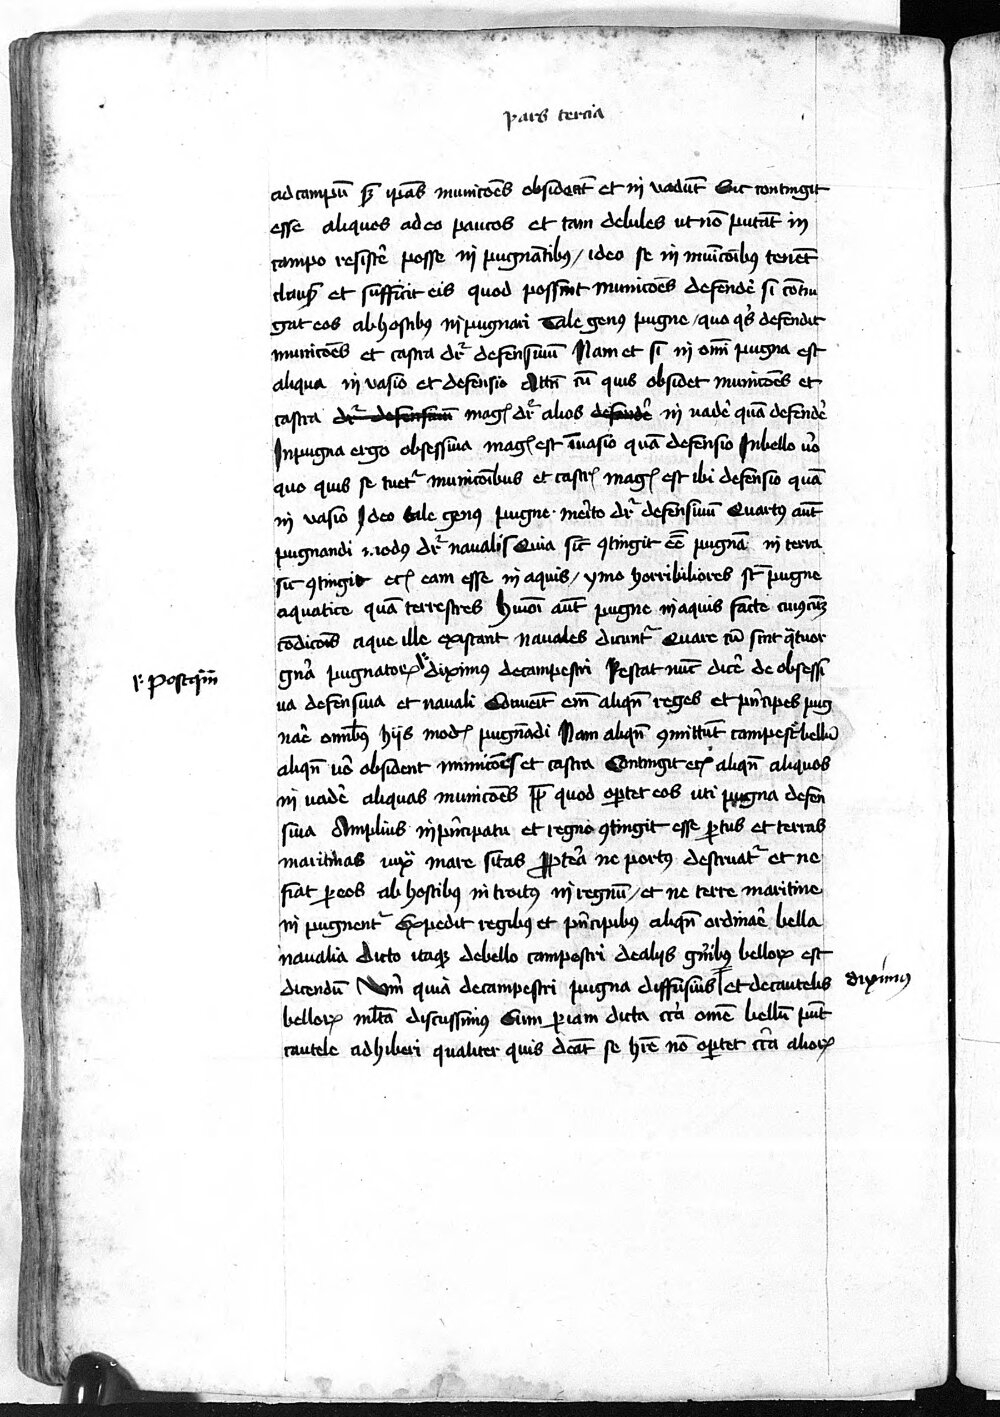 pars tercia
ad campū ꝑ ip̄as municōēs obsideāt et in vadūt Sic contingit
esse aliquos adeo paucos et tam debiles ut nō putāt in
campo resistē posse in pugnātibꝰ / ideo se in muīcōībꝰ tenēt
clausꝭ et sufficit eis quod possint municōēs defendē si cōtin
gat eos ab hostibꝰ in pugnari Tale genꝰ pugne / quo qͥs defendit
municōēs et castra dr̄ defensiuū Nam et si in om̄i pugna est
aliqua in vasio et defensio Attn̄ cū quis obsidet municōēs et
castra dr̄ defensiuū magꝭ dr̄ alios defendē in vadē quā defendē
In pugna ergo obsessiua magꝭ est īuasio quā defensio In bello v̊o
quo quis se tuet̄ municōibus et castrꝭ magꝭ est ibi defensio quā
in vasio Ideo tale genꝰ pugne merito dr̄ defensiuū Quartꝰ aūt
pugnandi modꝰ dr̄ naualis Quia sic̄ ꝯtingit eē̄ pugnā in terra
sic ꝯtingit etꝭ eam esse in aquis / ymo horribiliores st̄ pugne
aquatice quā terrestres Hm̄oi aūt pugne in aquis facte cuiꝰcūꝫ
cōdicōīs aque ille existant nauales dicunt̄ Quare cū sint q̄tuor
gn̄a pugnatoꝝ diximus de campestri Restat nūc dicē de obsessi
p̊ Postqͣm
ua defensiua et nauali Conueīt em̄ aliqn̄ reges et pn̄cipes pug
naē omībꝰ hijs modꝭ pugnādi Nam aliqn̄ ꝯmittūt campest̄ bellū
aliqn̄ v̊o obsident municōēs et castra Contingit etꝭ aliqn̄ aliquos
in vadē aliquas municōēs ꝓp̄ quod oꝑtet eos uti pugna defen
siua Amplius in pn̄cipatu et regno ꝯtingit esse ꝑtus et terras
maritimas iuxͣ mare sitas ꝓp̄tea ne portꝰ destruat̄ et ne
fiat ꝑ eos ab hostibꝰ in troitꝰ in regnū / et ne terre maritime
in pugnent̄ Expedit regibꝰ et pn̄cipibꝰ aliqn̄ ordinaē bella
naualia Dicto itaqꝫ de bello campestri de alijs gn̄ibꝰ belloꝝ est
dicendū Ver̄ quia de campestri pugna diffusius et de cautelis
diximꝰ
belloꝝ ml̄ta discussimꝰ Cum ꝑ iam dicta cc̄a om̄e bellū pn̄t
cautele adhiberi qualiter quis dēat se hr̄e nō oꝑtet cc̄a alioꝝ